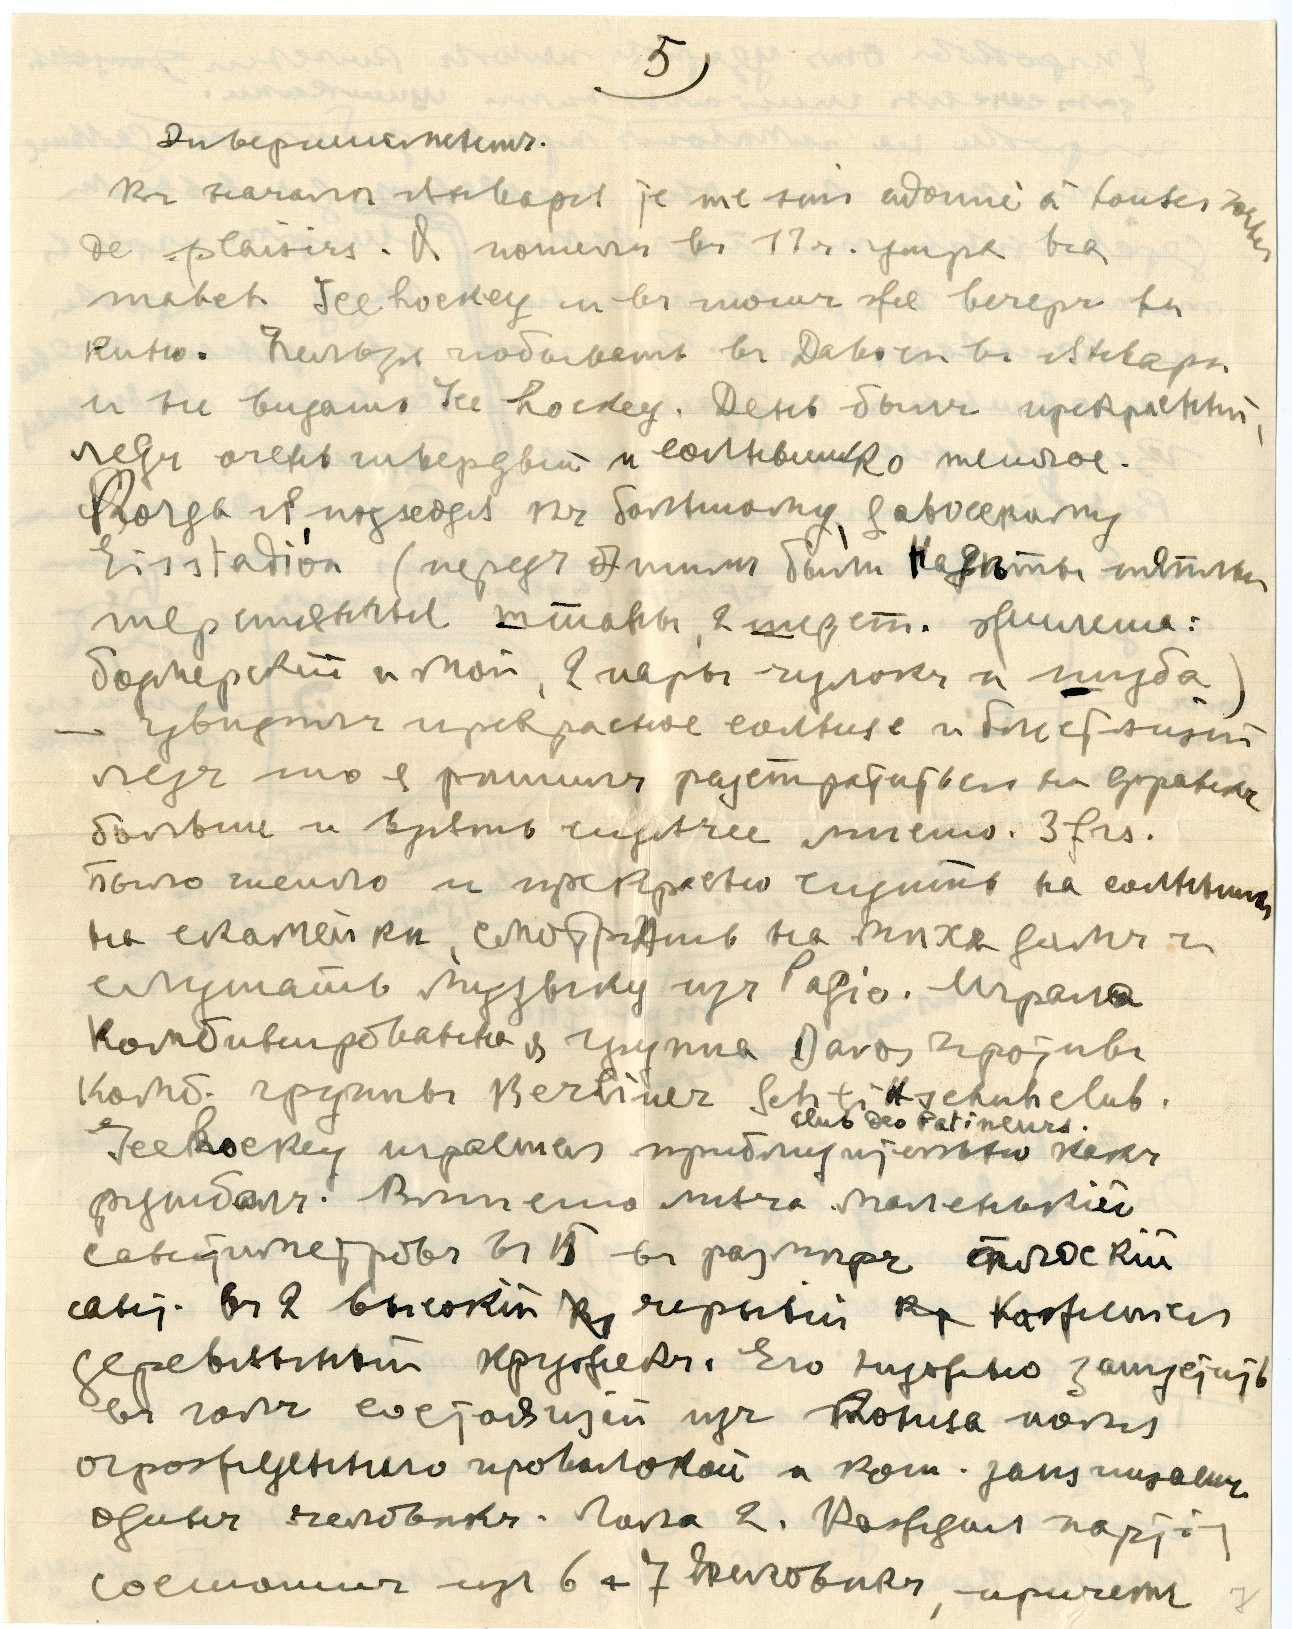 5)
Дивертисментъ.
Въ началѣ января je me suis adonné à toutes sortes
de plaisirs. Я пошелъ въ 11 ч. утра на
матсч Ice hockey и въ тотъ же вечеръ въ
кино. Нельзя побывать въ Davos'ѣ въ январѣ
и не видать Ice hockey. День былъ прекрасный,
ледъ очень твердый и солнышко теплое.
Когда я подходя къ большому давосскому
Eisstadion (передъ этимъ были надѣты тёплые
шерстяные штаны, 2 шерст. жилета:
боджерскій и мой, 2 пары чулокъ и шуба)
— увидѣлъ прекрасное солнце и блестящій
ледъ то я рѣшилъ разстратиться на франкъ
больше и взять сидячее мѣсто. 3 frs.
Было тепло и прекрасно сидѣть на солнышкѣ
на скамейкѣ, смотрѣть на михъ дамъ и
слушать музыку изъ Радіо. Играла
Комбинированная группа Davos противъ
Комб. группы Berliner Schlittschuhclub.
club des Patineurs.
Ice hockey играется приблизительно какъ
футболъ. Вмѣсто мяча маленькій
сантиметровъ въ 15 въ размѣрѣ плоскій
сант. въ 2 высокій черный кажется
деревянный кружекъ. Его нужно запустить
въ голъ состоящій изъ конца поля
огражденнаго проволокой и кот. защищаетъ
одинъ человѣкъ. Гола 2. Каждая партія
состоитъ изъ 6 - 7 человѣкъ, причемъ